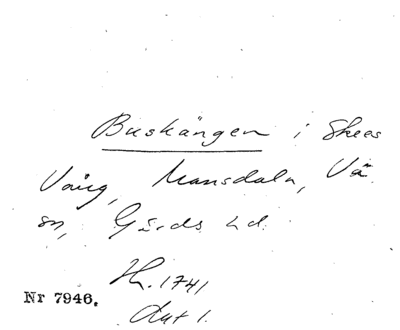 Buskängen i Skees
Vång, Mansdala, Vä
sn, Gärds hd.
H. 1741
Akt 1.
Nr 7946.